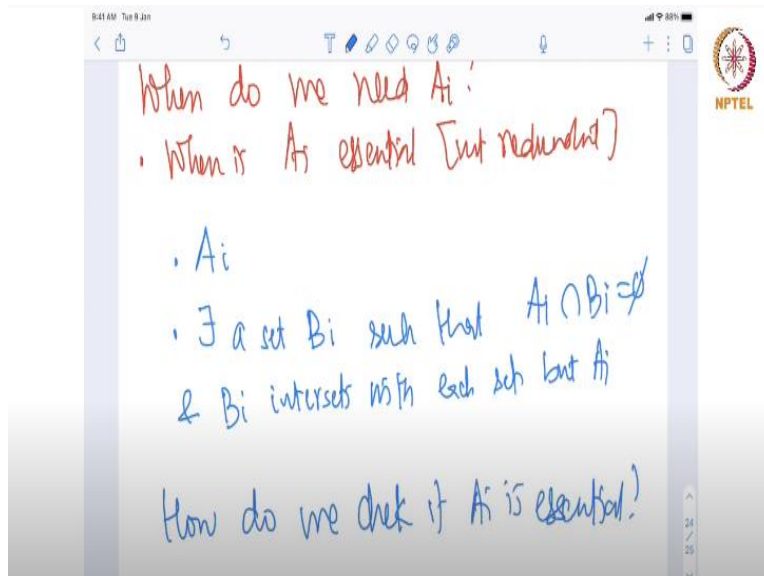 9:41 AM Tue 9 Jan
88%
NPTEL
When do we need Ai?
• When is Ai essential [not redundant]
• Ai
• ∃ a set Bi such that Ai ∩ Bi = ∅
& Bi intersets with each set but Ai
How do we chek if Ai is essential?
24
/
25